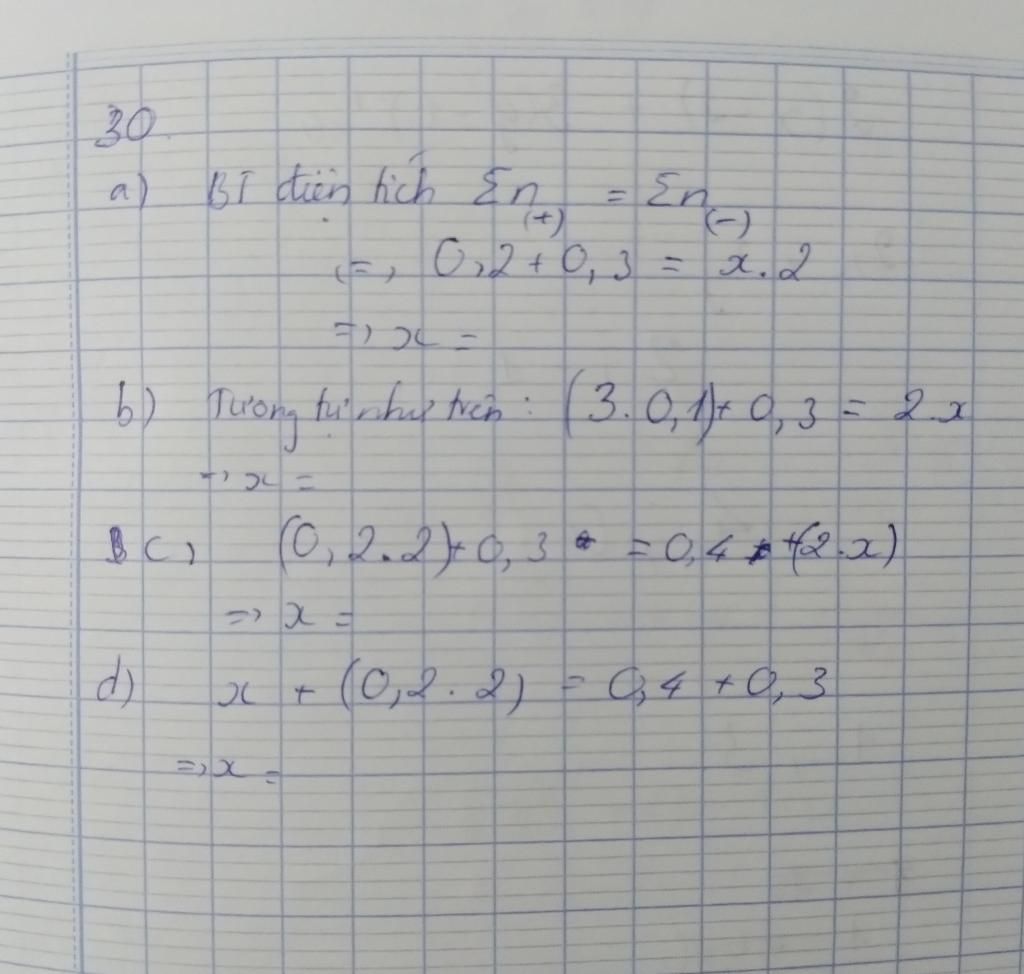 30
a) BT điện tích Σn(+) = Σn(-)
(=, 0,2 + 0,3 = x.2
=> x =
b) Tương tự như trên: (3.0,1) + 0,3 = 2.x
=> x =
c, (0,2.2) + 0,3 = 0,4 + (2.x)
=> x =
d) x + (0,2.2) = 0,4 + 0,3
=> x =